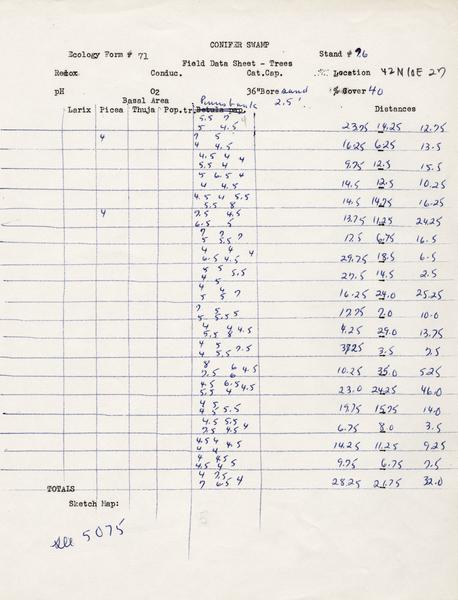 CONIFER SWAMP
Ecology Form # 71 Stand # 26
Field Data Sheet - Trees
Redox Conduc. Cat.Cap. Location 42N 10E 27
pH O2 36"Bore sand % Cover 40
Basal Area 2.5'
Larix Picea Thuja Pop.tr. Betula pap. Distances
5.5 7
5 4.5 23.75 14.25 12.75
4 7 5
4 4.5 16.25 6.25 13.5
4.5 4 4
5.5 4 9.75 12.5 15.5
5 6.5 4
4 4.5 14.5 12.5 10.25
4.5 4 5.5
5.5 8 14.5 14.75 16.25
4 7.5 4.5
6.5 5 13.75 11.25 24.25
7 7
5 5.5 7 17.5 6.75 16.5
4 4 4
6.5 4.5 29.75 18.5 6.5
5 5 5.5
4 27.5 14.5 2.5
4
5 5 7 16.25 24.0 25.25
7
5 5.5 5 17.75 7.0 10.0
4 4 4.5
5.5 8 4.25 29.0 13.75
4 5 7.5
4 5.5 3.5 7.5
8 6 4.5
7.5 6 10.25 35.0 5.25
4.5 6.5 4.5
5.5 4 23.0 24.25 46.0
4 5
4 5 5.5 19.75 15.75 14.0
4.5 5.5
7.5 4.5 4 6.75 8.0 3.5
4.5 4 4.5
4 4 14.25 11.25 9.25
4 4.5
4.5 4 5 9.75 6.75 7.5
4 7.5
7 6.5 4 28.25 21.75 32.0
TOTALS
Sketch Map:
see 5075